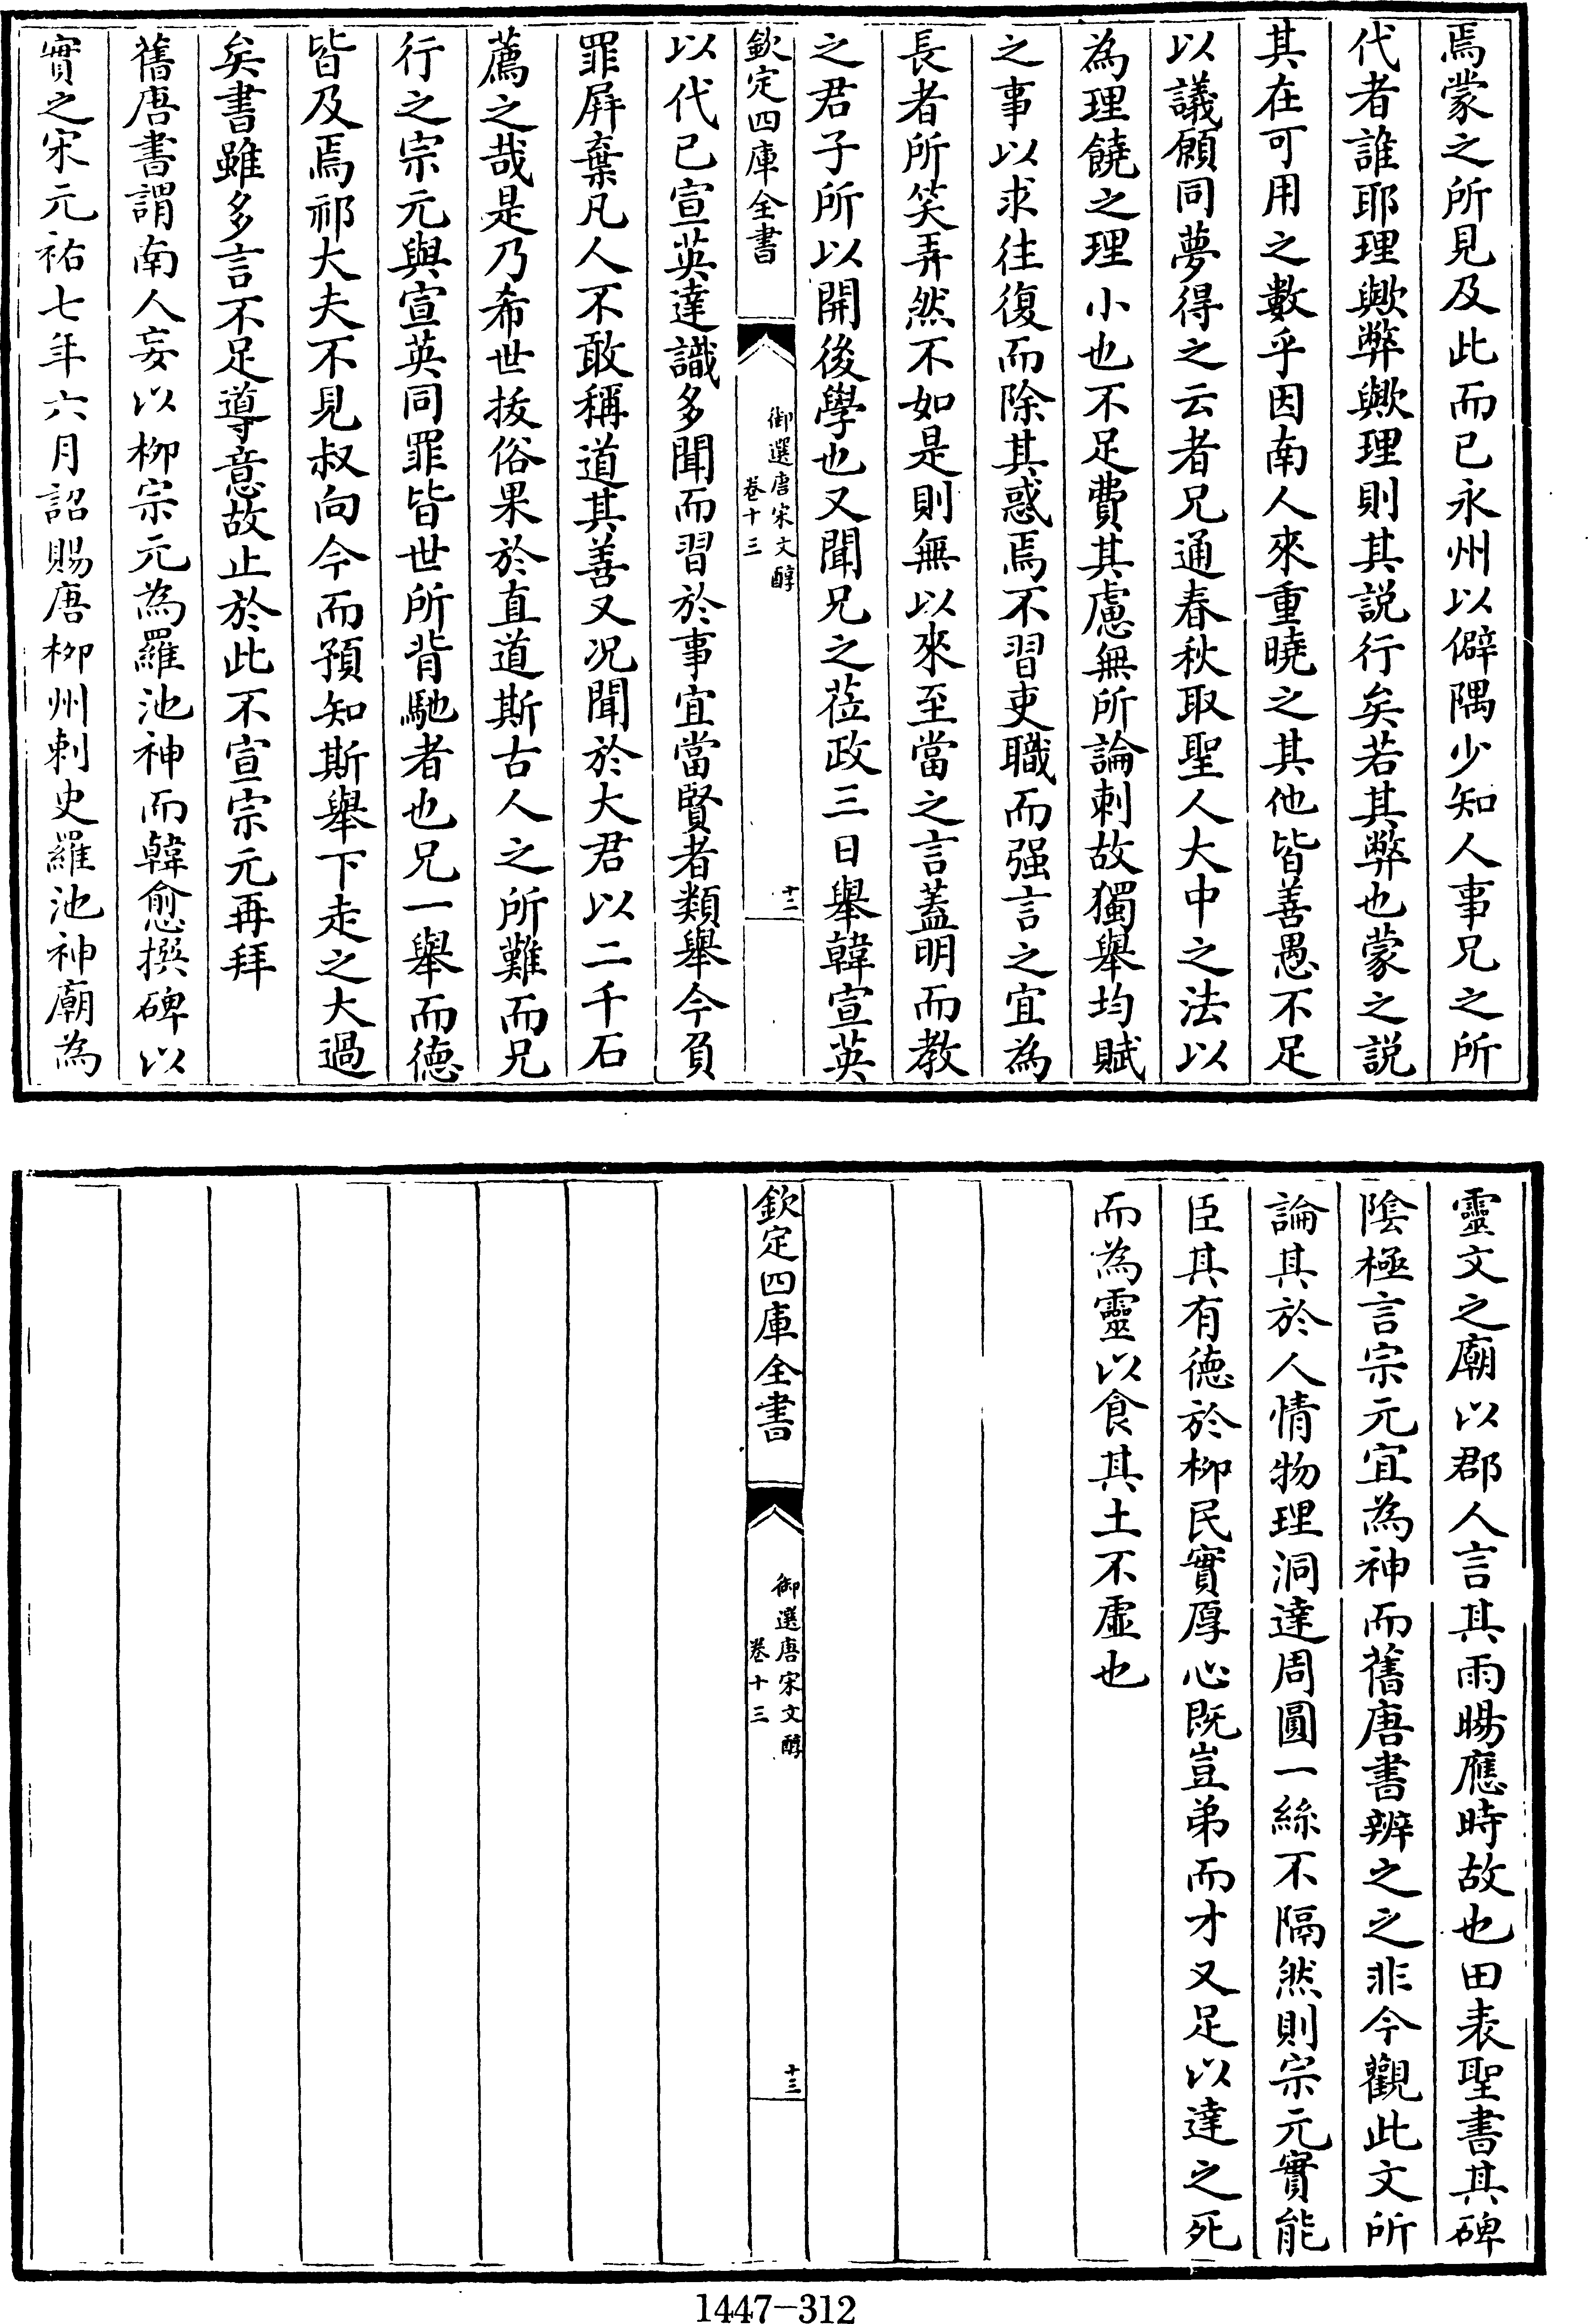 焉蒙之所見及此而已永州以僻隅少知人事兄之所
代者誰耶理歟弊歟理則其説行矣若其弊也蒙之説
其在可用之數乎因南人來重曉之其他皆善愚不足
以議願同夢得之云者兄通春秋取聖人大中之法以
為理饒之理小也不足費其慮無所論刺故獨舉均賦
之事以求往復而除其惑焉不習吏職而强言之宜為
長者所笑弄然不如是則無以來至當之言蓋明而教
之君子所以開後學也又聞兄之莅政三日舉韓宣英
欽定四庫全書
御選唐宋文醇
卷十三
十二
以代已宣英達識多聞而習於事宜當賢者類舉今負
罪屛棄凡人不敢稱道其善又况聞於大君以二千石
薦之哉是乃希世拔俗果於直道斯古人之所難而兄
行之宗元與宣英同罪皆世所背馳者也兄一舉而德
皆及焉祁大夫不見叔向今而預知斯舉下走之大過
矣書雖多言不足導意故止於此不宣宗元再拜
舊唐書謂南人妄以柳宗元為羅池神而韓愈撰碑以
實之宋元祐七年六月詔賜唐柳州刺史羅池神廟為
靈文之廟以郡人言其雨暘應時故也田表聖書其碑
陰極言宗元宜為神而舊唐書辨之之非今觀此文所
論其於人情物理洞達周圓一絲不隔然則宗元實能
臣其有德於柳民實厚心既豈弟而才又足以達之死
而為靈以食其土不虛也
欽定四庫全書
御選唐宋文醇
卷十三
十三
1447-312